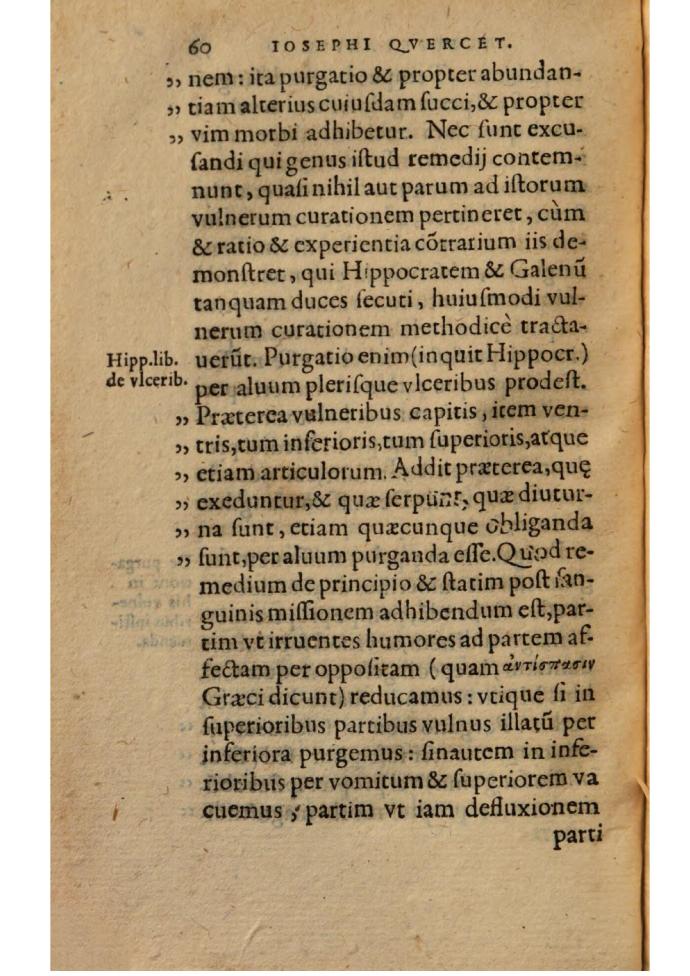 60 IOSEPHI QVERCET.
„ nem: ita purgatio & propter abundan-
„ tiam alterius cuiuſdam ſucci,& propter
„ vim morbi adhibetur. Nec ſunt excu-
ſandi qui genus iſtud remedij contem-
nunt, quaſi nihil aut parum ad iſtorum
vulnerum curationem pertineret, cùm
& ratio & experientia cõtrarium iis de-
monſtret, qui Hippocratem & Galenū
tanquam duces ſecuti, huiuſmodi vul-
nerum curationem methodicè tracta-
Hipp.lib.
de vlcerib.
uerūt. Purgatio enim (inquit Hippocr.)
per aluum pleriſque vlceribus prodeſt.
„ Præterea vulneribus capitis, item ven-
„ tris, tum inferioris, tum ſuperioris, atque
„ etiam articulorum. Addit præterea, quę
„ exeduntur, & quæ ſerpunt, quæ diutur-
„ na ſunt, etiam quæcunque obliganda
„ ſunt, per aluum purganda eſſe. Quod re-
medium de principio & ſtatim poſt ſan-
guinis miſſionem adhibendum eſt, par-
tim vt irruentes humores ad partem af-
fectam per oppoſitam (quam ἀντίσπασιν
Græci dicunt) reducamus: vtique ſi in
ſuperioribus partibus vulnus illatū per
inferiora purgemus: ſinautem in infe-
rioribus per vomitum & ſuperiorem va
cuemus; partim vt iam defluxionem
parti